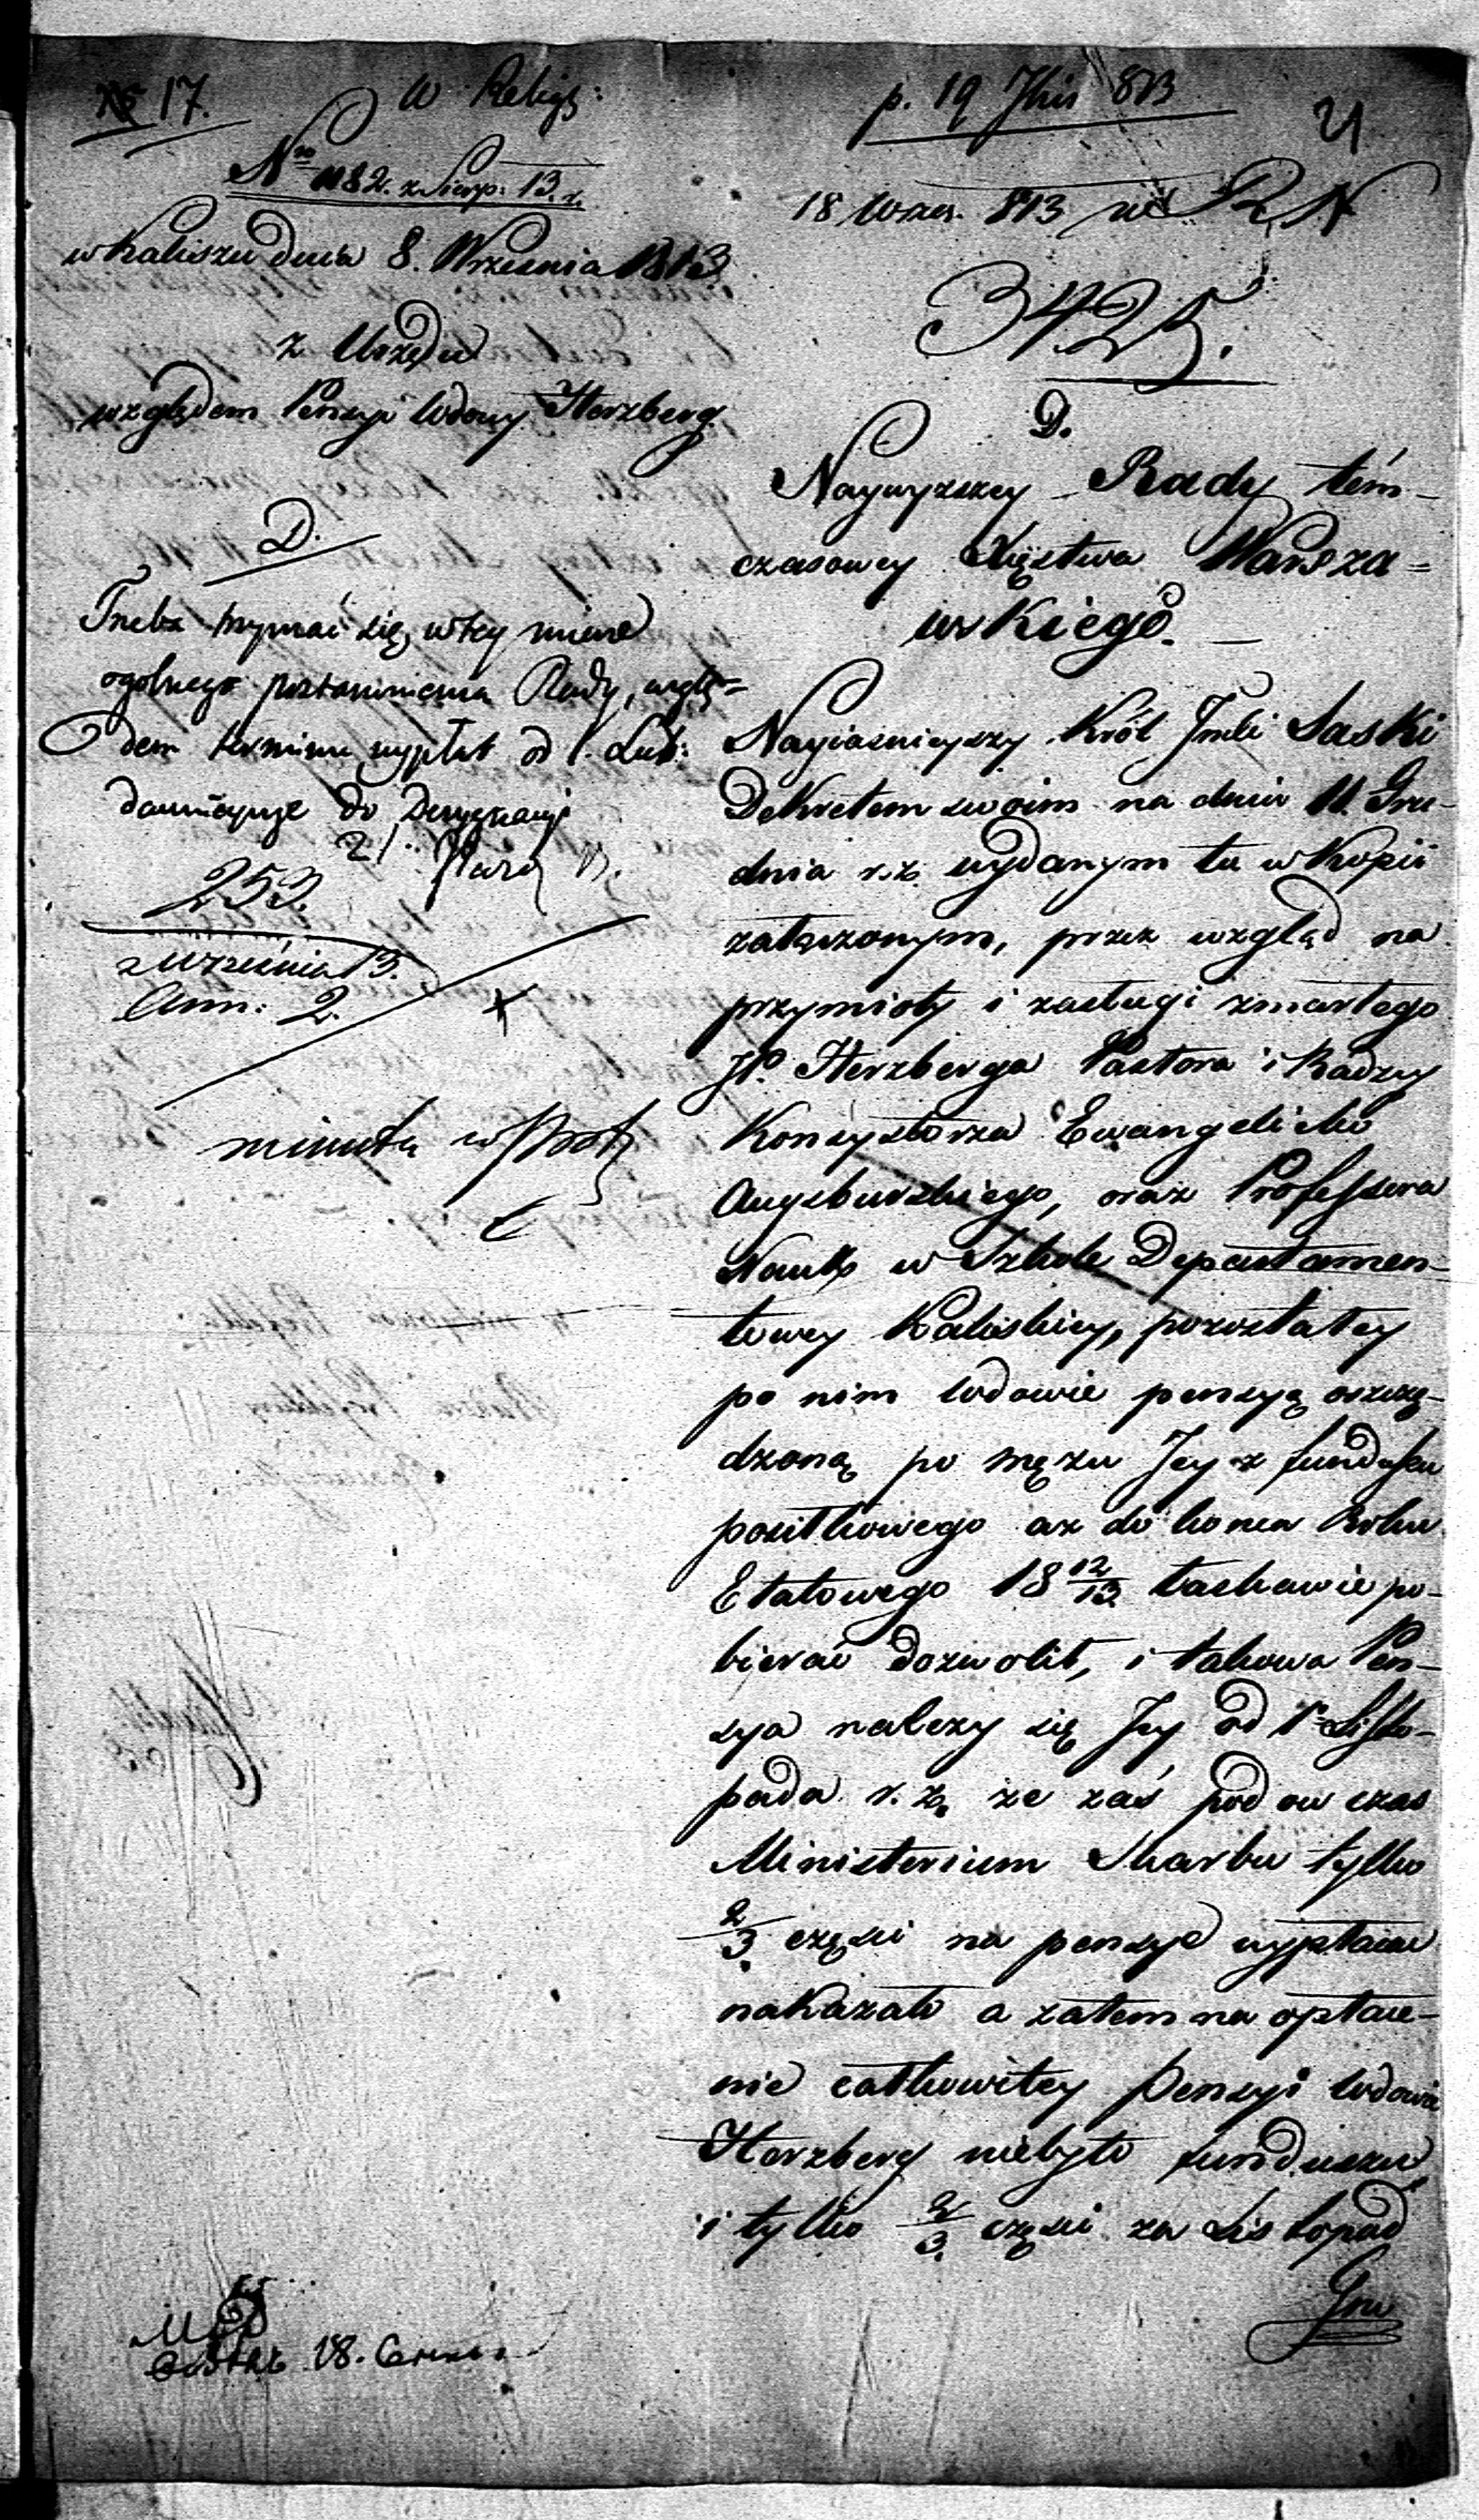 № 17.
W Relig:
N 1182. z Sierp: 13. r.
w Kaliszu dnia 8. Września 1813
z Urzędu
względem Pensyi Wdowy Herzberg.
D.
Trzeba trzymać się w tey mierze
ogolnego postanowienia Rady, wzglę=
dem terminu wypłat od 1.
do
21.
253.
z Września 13.
Ann: 2.
minuta w
p. 19 813
21
18 Wrzes. 813
3425.
D.
Naywyzszey Rady tém-
czasowey Xięstwa Warsza=
wskiego.
Nayiasnieyszy Król Jmći Saski
Dekretem swoim na dniu 11. Gru-
dnia r. z. wydanym tu w Kopii
załączonym, przez wzgląd na
przymioty i zasługi zmarłego
JP. Herzberga Pastora i Radzcy
Konsystorza Ewangelicko
Augsburskiego, oraz Professora
Nauk w Szkole Departamen-
towey Kaliskiey, pozostałey
po nim Wdowie pensyą oszczę-
dzoną po mężu Jey z funduszu
posiłkowego aż do końca Roku
Etatowego 18 12/13 łaskawie po-
bierać dozwolił, i takowa Pen-
sya należy się Jey od 1º Listo-
pada r. z. że zaś pod ow czas
Ministerium Skarbu tylko
2/3 części na pensye wypłacać
nakazało a zatem na opłace-
nie całkowitey Pensyi Wdowie
Herzberg niebyło funduszu
i tylko 2/3 części za Listopad
Gru